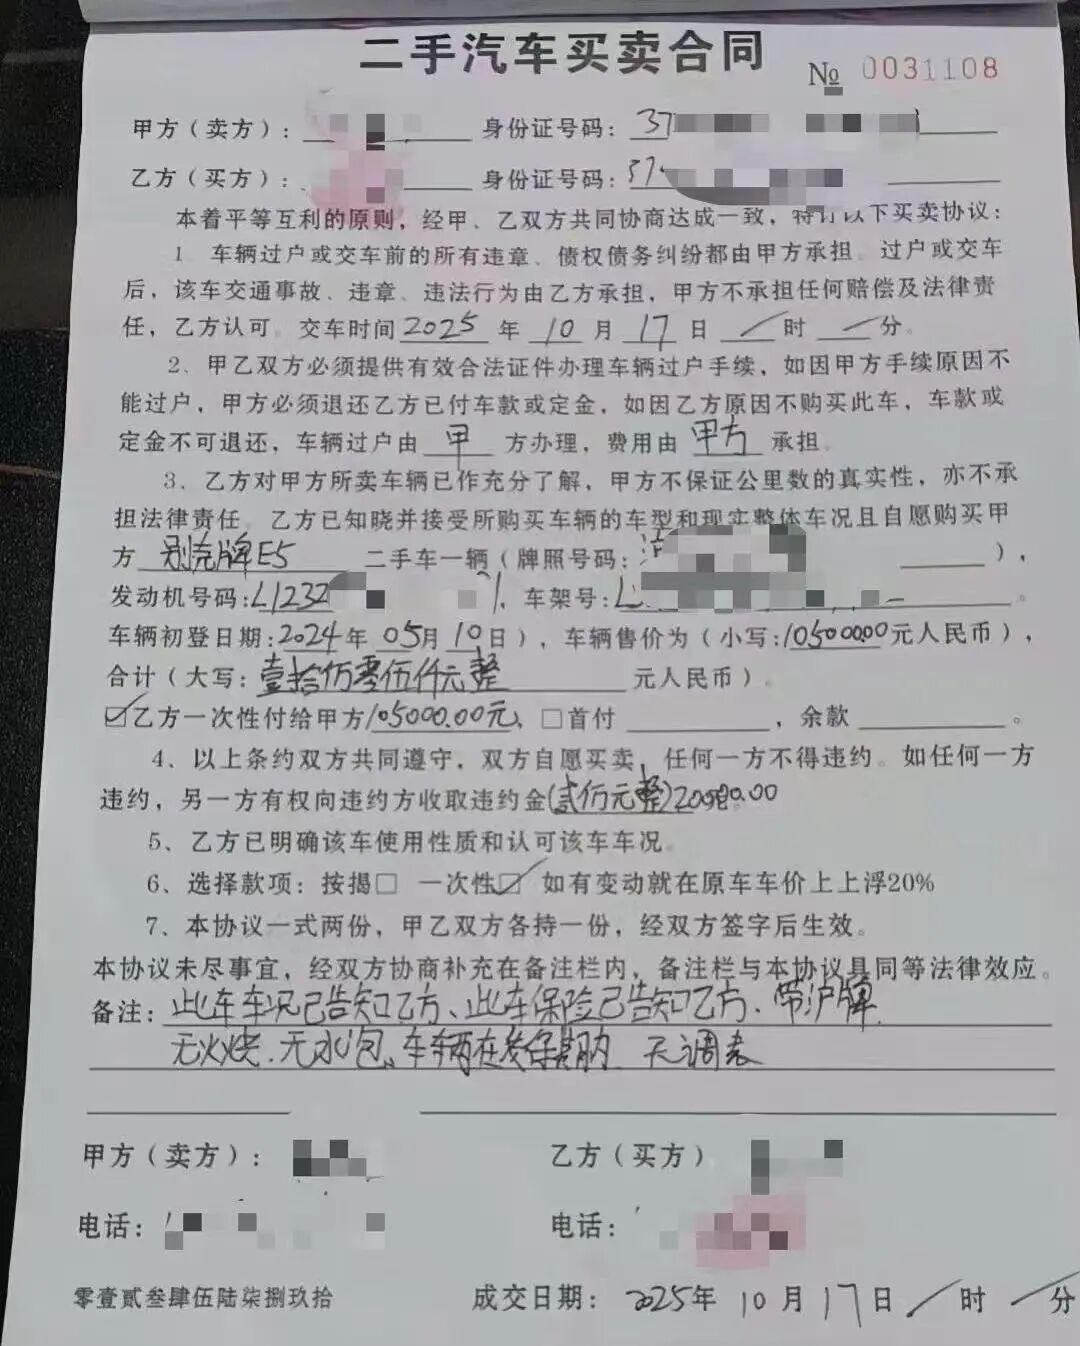 二手汽车买卖合同
№ 0031108
甲方（卖方）： 身份证号码：37
乙方（买方）： 身份证号码：37
本着平等互利的原则，经甲、乙双方共同协商达成一致，特订以下买卖协议：
1、车辆过户或交车前的所有违章、债权债务纠纷都由甲方承担。过户或交车
后，该车交通事故、违章、违法行为由乙方承担，甲方不承担任何赔偿及法律责
任，乙方认可。交车时间2025年10月17日／时／分。
2、甲乙双方必须提供有效合法证件办理车辆过户手续，如因甲方手续原因不
能过户，甲方必须退还乙方已付车款或定金，如因乙方原因不购买此车，车款或
定金不可退还，车辆过户由甲方办理，费用由甲方承担。
3、乙方对甲方所卖车辆已作充分了解，甲方不保证公里数的真实性，亦不承
担法律责任。乙方已知晓并接受所购买车辆的车型和现实整体车况且自愿购买甲
方别克牌E5二手车一辆（牌照号码：），
发动机号码：L1232，车架号：L。
车辆初登日期：2024年05月10日），车辆售价为（小写：105000.00元人民币），
合计（大写：壹拾万零伍仟元整元人民币）。
☑乙方一次性付给甲方105000.00元、□首付，余款。
4、以上条约双方共同遵守，双方自愿买卖，任何一方不得违约。如任何一方
违约，另一方有权向违约方收取违约金(贰仟元整)
5、乙方已明确该车使用性质和认可该车车况。
6、选择款项：按揭□ 一次性☑ 如有变动就在原车车价上上浮20%
7、本协议一式两份，甲乙双方各持一份，经双方签字后生效。
本协议未尽事宜，经双方协商补充在备注栏内，备注栏与本协议具同等法律效应。
备注：此车车况已告知乙方、此车保险已告知乙方、带沪牌
无火烧、无水泡、车辆在质保期内 无调表
甲方（卖方）： 乙方（买方）
电话： 电话：
零壹贰叁肆伍陆柒捌玖拾 成交日期：2025年10月17日／时／分